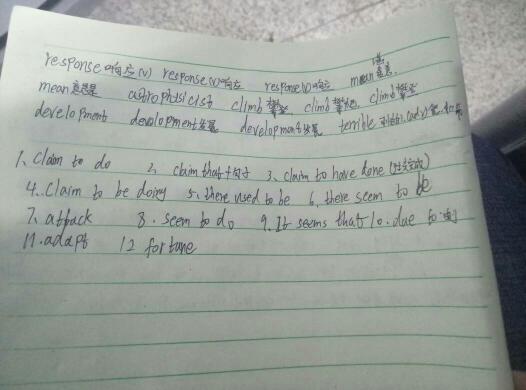 response 响应(v) response(v)响应 response(v)响应 mean 意思.
mean 意思是 astrophisicist climb 攀爬 climb 攀爬 climb 攀爬
development development发展 development发展 terrible
1、Claim to do 2、claim that+句子 3、claim to have done
4、Claim to be doing 5、there used to be 6、there seem to be
7、attack 8、seem to do 9、It seems that 10、due to
11、adapt 12 fortune